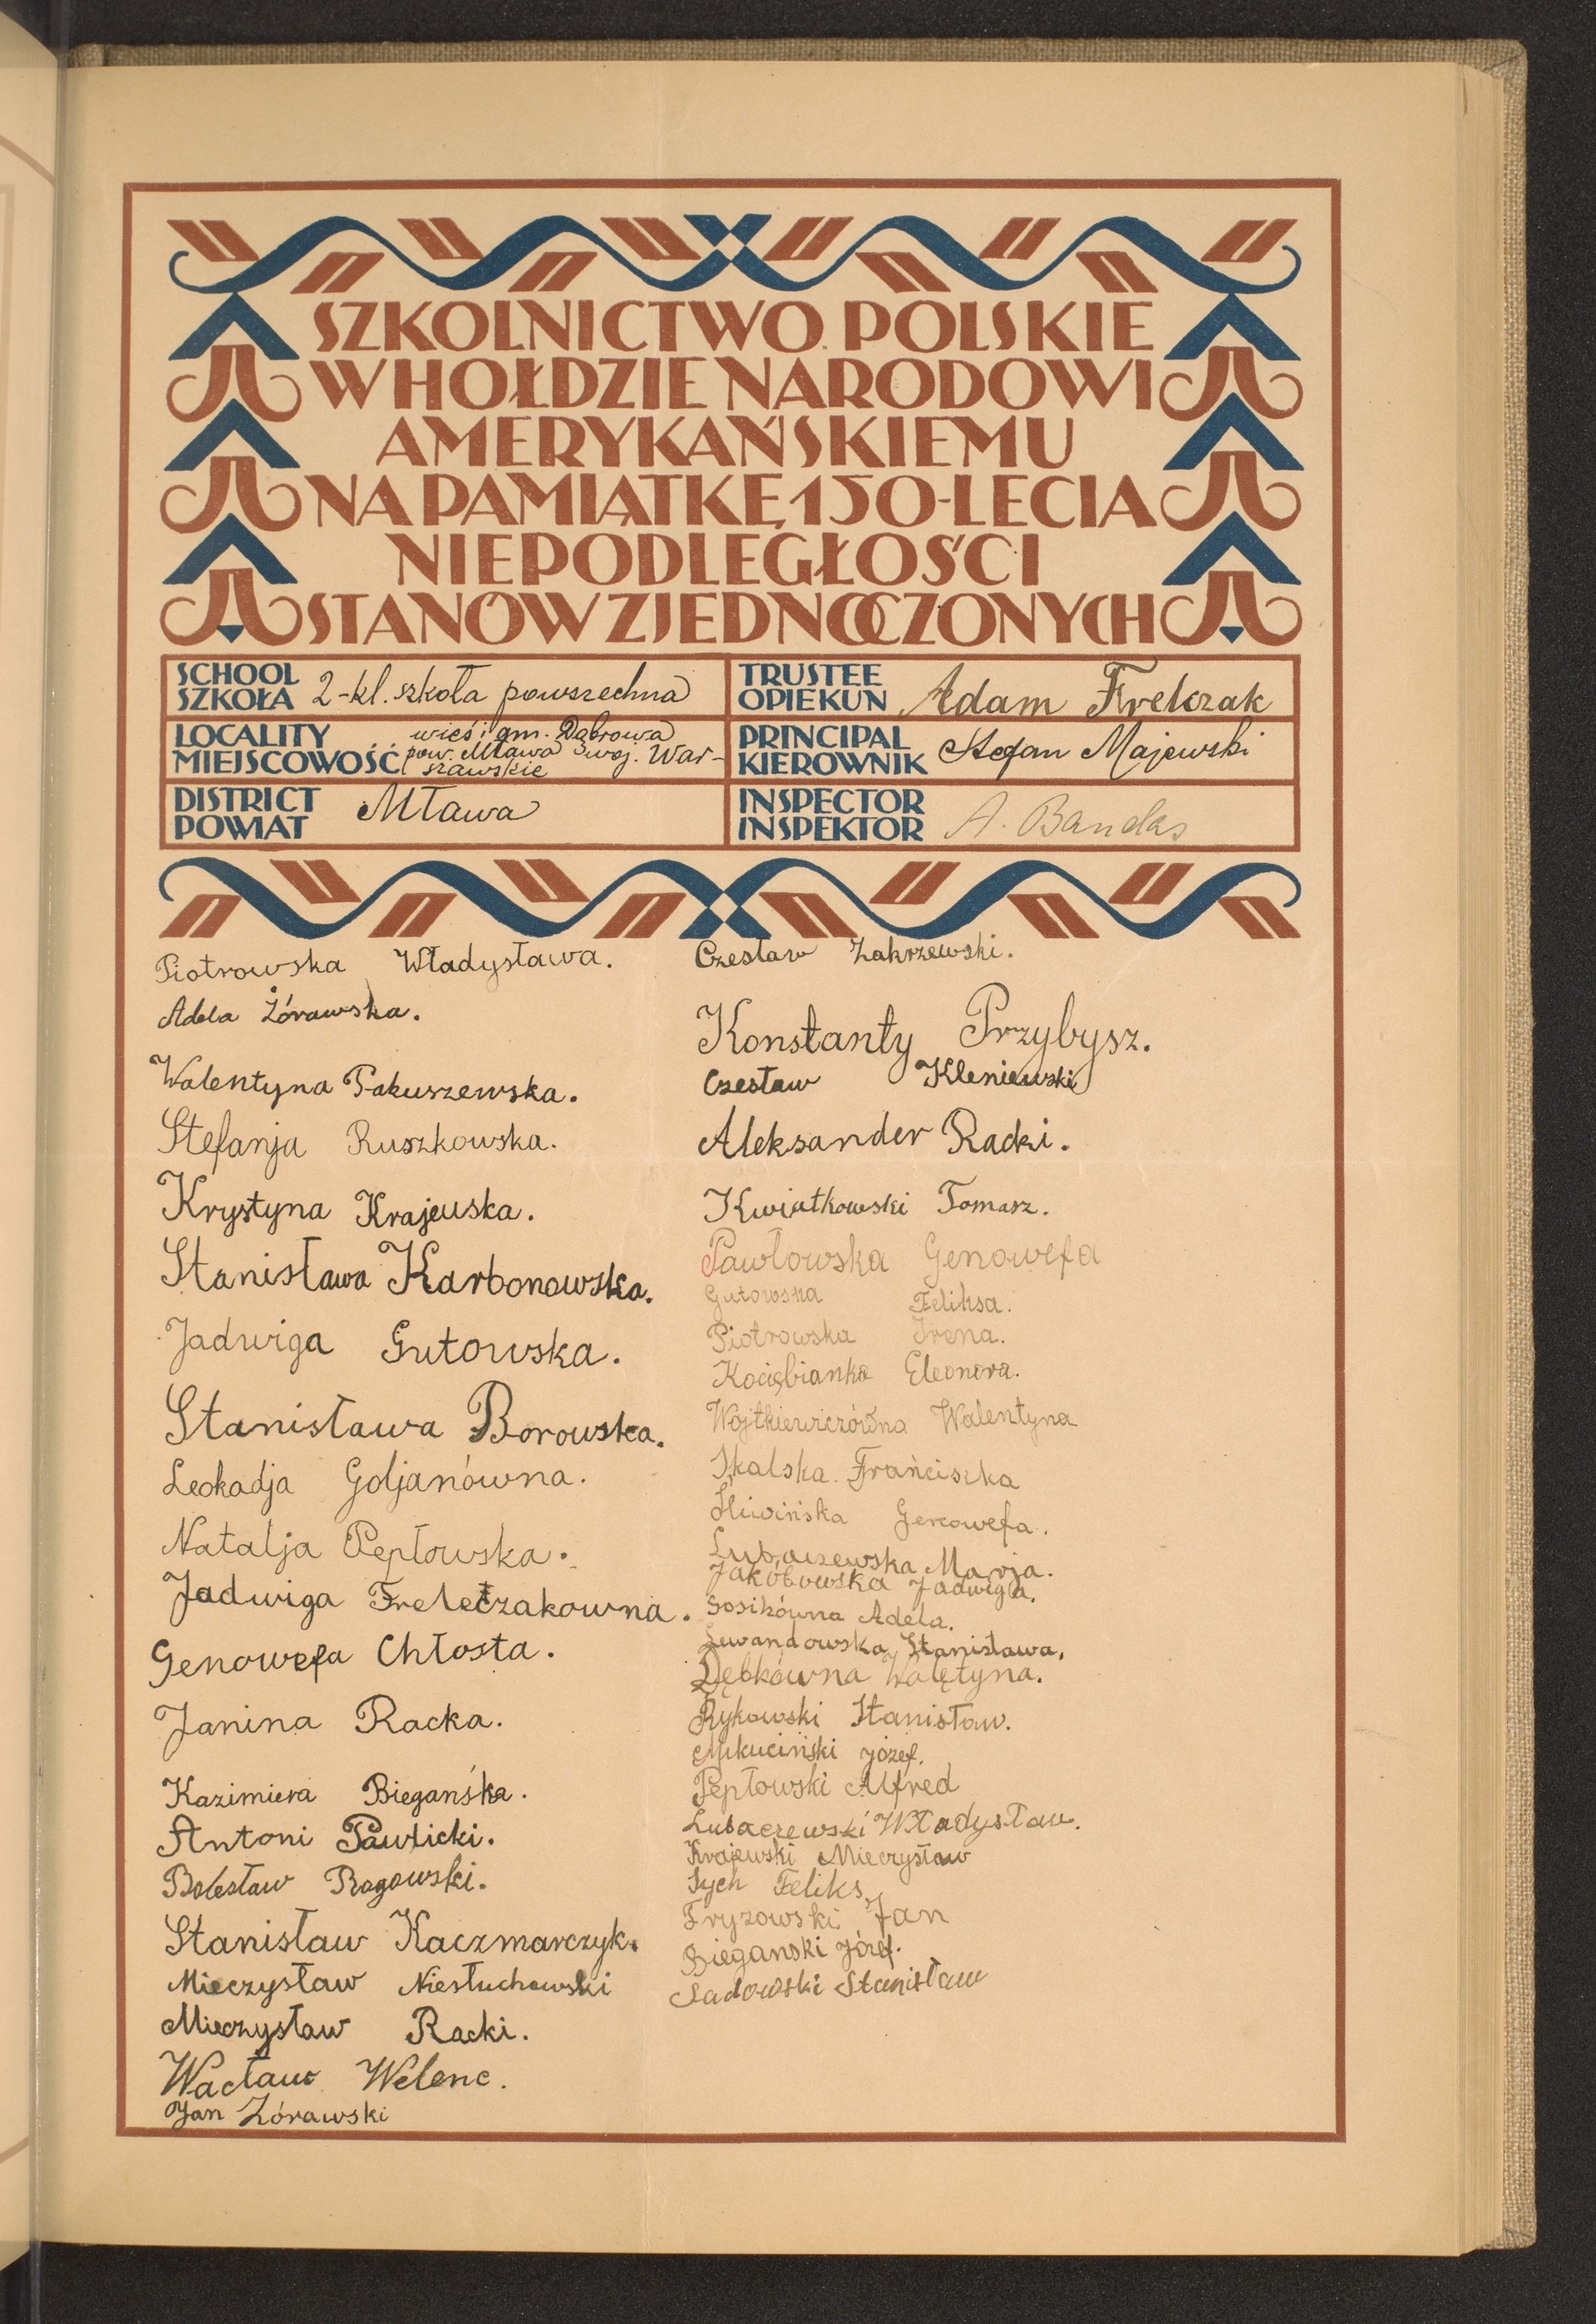 SZKOLNICTWO POLSKIE
W HOŁDZIE NARODOWI
AMERYKAŃSKIEMU
NA PAMIĄTKĘ 150-LECIA
NIEPODLEGŁOŚCI
STANÓW ZJEDNOCZONYCH
SCHOOL
SZKOŁA 2-kl. szkoła powszechna
TRUSTEE
OPIEKUN Adam Frelczak
LOCALITY
MIEJSCOWOŚĆ wieś i gm. Dąbrowa
pow. Mława woj. War-
szawskie
PRINCIPAL
KIEROWNIK Stefan Majewski
DISTRICT
POWIAT Mława
INSPECTOR
INSPEKTOR A. Bandas
Piotrowska Władysława.
Adela Żórawska.
Walentyna Pakuszewska.
Stefanja Ruszkowska.
Krystyna Krajewska.
Stanisława Karbonowska.
Jadwiga Gutowska.
Stanisława Borowska.
Leokadja Goljanówna.
Natalja Pepłowska.
Jadwiga Frelczakowna.
Genowefa Chłosta.
Janina Racka.
Kazimiera Biegańska.
Antoni Pawlicki.
Bolesław Rogowski.
Stanisław Kaczmarczyk.
Mieczysław Niesłuchowski
Mieczysław Racki.
Wacław Welenc.
Jan Żórawski
Czesław Zakrzewski.
Konstanty Przybysz.
Czesław Kleniewski
Aleksander Racki.
Kwiatkowski Tomasz.
Pawłowska Genowefa
Gutowska Feliksa.
Piotrowska Irena.
Kociębianka Eleonora.
Wojtkiewiczówna Walentyna
Skalska Frańciszka
Śliwińska Genowefa.
Lubaczewska Marja.
Jakóbowska Jadwiga.
Sosikówna Adela.
Lewandowska Stanisława.
Dębkówna Walętyna.
Rykowski Stanisław.
Mikuciński Józef.
Pepłowski Alfred
Lubaczewski Władysław.
Krajewski Mieczysław
Sych Feliks
Fryzowski Jan
Bieganski Józef.
Sadowski Stanisław